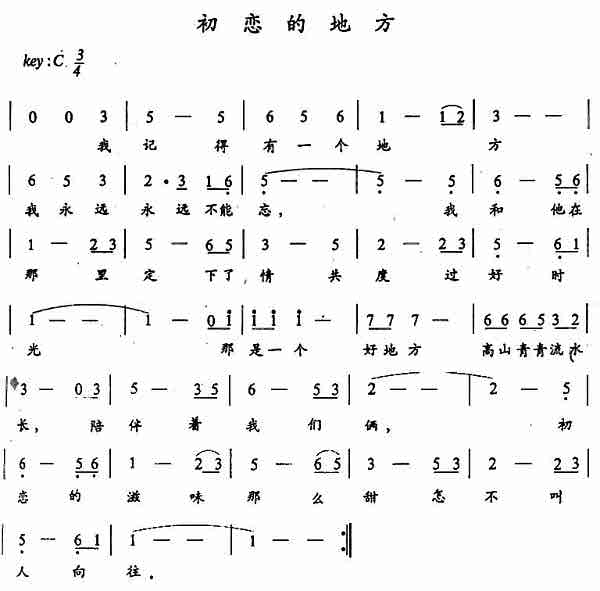 初恋的地方
key:C 3/4
0 0 3 | 5 — 5 | 6 5 6 | 1 — 1 2 | 3 — —
我记得有一个地方
6 5 3 | 2 · 3 1 6 | 5 — — | 5 — 5 | 6 — 5 6
我永远永远不能忘，我和他在
1 — 2 3 | 5 — 6 5 | 3 — 5 | 2 — 2 3 | 5 — 6 1
那里定下了，情共度过好时
1 — — | 1 — 0 i | i i i — | 7 7 7 — | 6 6 6 5 3 2
光那是一个好地方高山青青流水
3 — 0 3 | 5 — 3 5 | 6 — 5 3 | 2 — — | 2 — 5
长，陪伴着我们俩，初
6 — 5 6 | 1 — 2 3 | 5 — 6 5 | 3 — 5 3 | 2 — 2 3
恋的滋味那么甜怎不叫
5 — 6 1 | 1 — — | 1 — — :|
人向往．